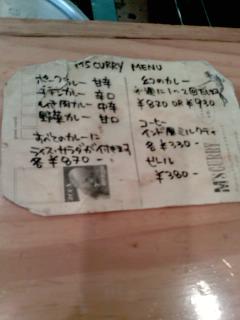 M'S CURRY MENU
ポークカレー 甘辛
チキンカレー 辛口
ひき肉カレー 中辛
野菜カレー 甘口
すべてのカレーに
ライス・サラダが付きます
各 ¥870-
幻のカレー
¥870 OR ¥930
コーヒー
インド風ミルクティ
各 ¥330-
ゼリー
¥380-
M'S CURRY